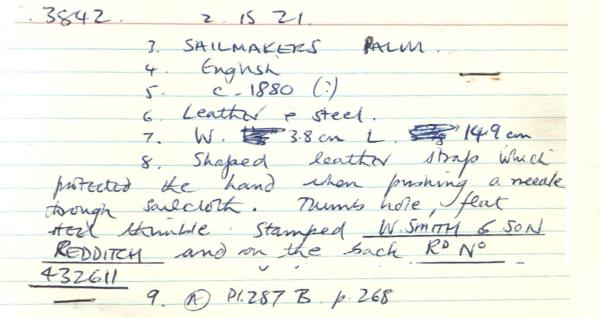 3842. 2 15 21.
3. SAILMAKERS PALM.
4. English
5. c. 1880 (?)
6. Leather & steel.
7. W. 3.8 cm L. 14.9 cm
8. Shaped leather strap which
protected the hand when pushing a needle
through sailcloth. Thumb hole, flat
steel thimble. Stamped W. SMITH & SON
REDDITCH and on the back RD NO
432611
9. (A) Pl. 287 B p. 268